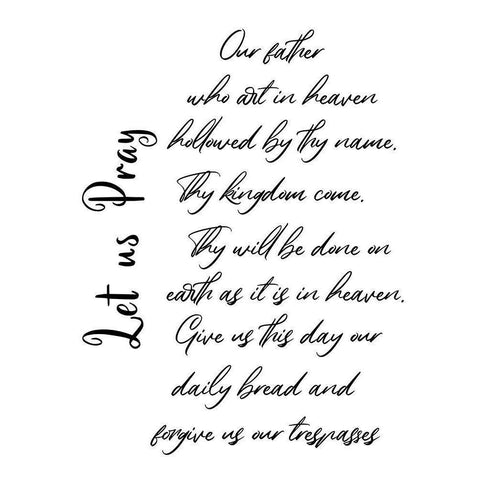 Let us Pray
Our father
who art in heaven
hollowed by thy name.
Thy kingdom come.
Thy will be done on
earth as it is in heaven.
Give us this day our
daily bread and
forgive us our trespasses